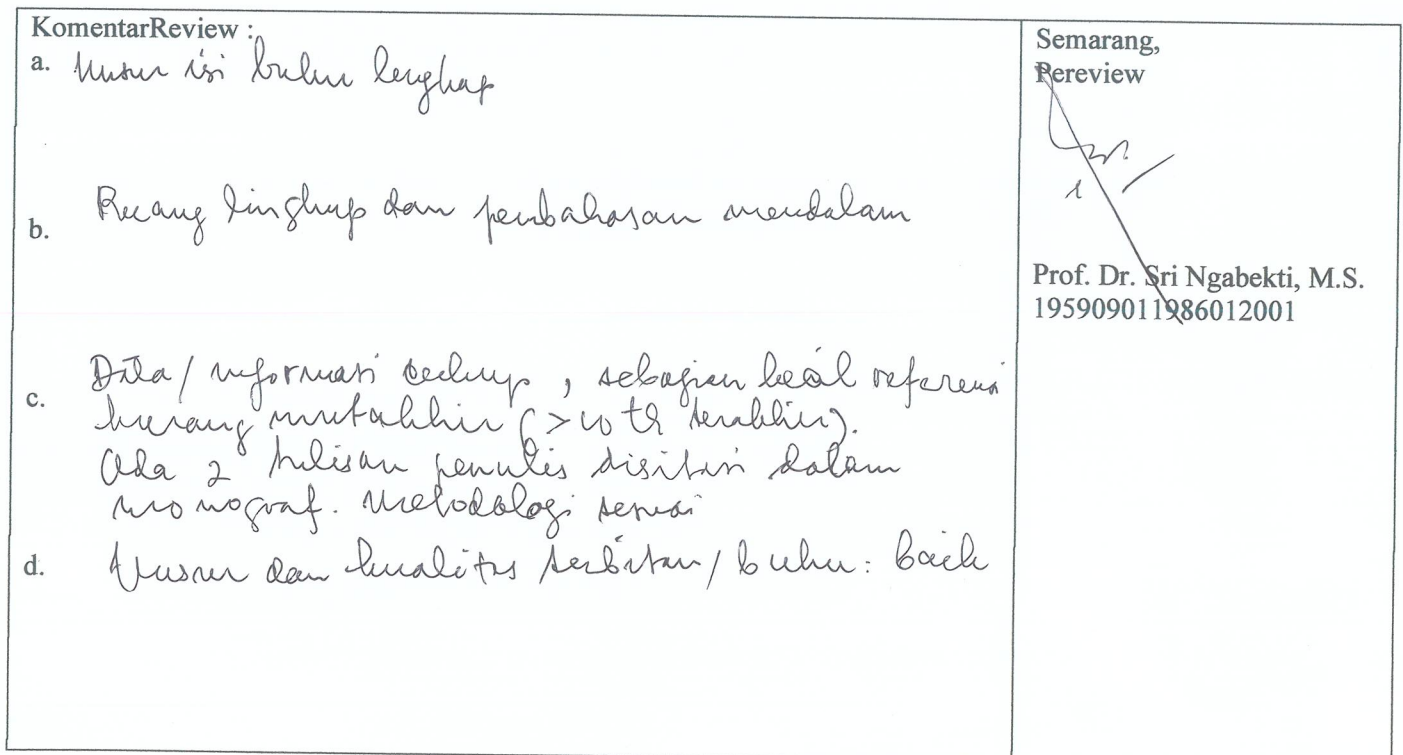 KomentarReview :
a. Unsur isi buku lengkap
b. Ruang lingkup dan pembahasan mendalam
c. Data / informasi cukup, sebagian besar referensi
kurang mutakhir (>10 th terakhir).
Ada 2 tulisan penulis disitasi dalam
monograf. Metodologi sesuai
d. Unsur dan kualitas terbitan / buku: baik
Semarang,
Pereview
Prof. Dr. Sri Ngabekti, M.S.
195909011986012001